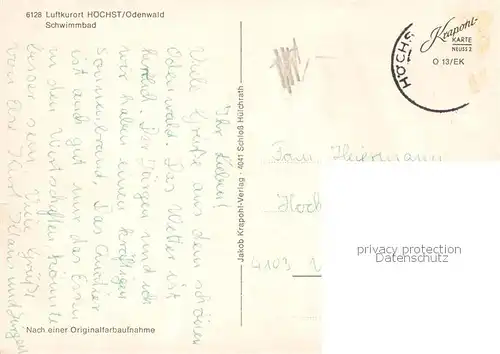 6128 Luftkurort HÖCHST/Odenwald
Schwimmbad
Ihr Lieben!
Viele Grüße aus dem schönen
Odenwald. Das Wetter ist
herrlich. Der Jürgen und ich
wir haben einen kräftigen
Sonnenbrand. Das Quartier
ist auch gut nur das Essen
in den Wirtschaften könnte
besser sein. Viele Grüße
von
Hans und Jürgen
Nach einer Originalfarbaufnahme
Jakob Krapohl-Verlag · 4041 Schloß Hülchrath
HÖCHS
Krapohl-
KARTE
NEUSS 2
O 13/EK
Fam. Heiermann
Hoch
4103
privacy protection
oldthing.de